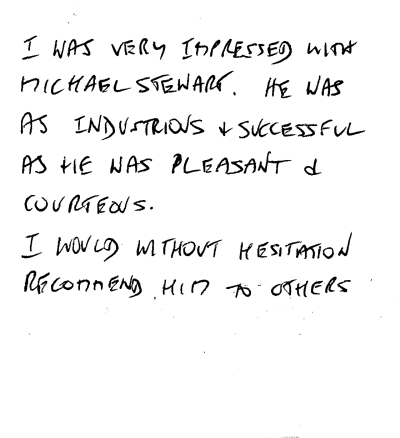 I WAS VERY IMPRESSED WITH
MICHAEL STEWART. HE WAS
AS INDUSTRIOUS & SUCCESSFUL
AS HE WAS PLEASANT &
COURTEOUS.
I WOULD WITHOUT HESITATION
RECOMMEND HIM TO OTHERS